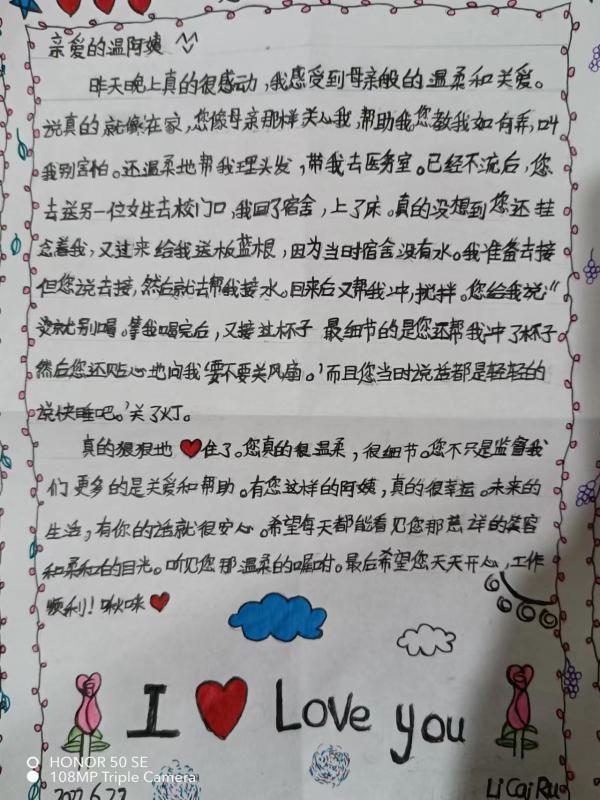 亲爱的温阿姨
昨天晚上真的很感动,我感受到母亲般的温柔和关爱。
说真的就像在家,您像母亲那样关心我,帮助我您教我如何弄,叫
我别害怕。还温柔地帮我理头发,带我去医务室。已经不流后,您
去送另一位女生去校门口,我回了宿舍,上了床。真的没想到您还挂
念着我,又过来给我送板蓝根,因为当时宿舍没有水。我准备去接
但您说去接,然后就去帮我接水。回来后又帮我冲,搅拌。您给我说:“
烫就别喝。等我喝完后,又接过杯子 最细节的是您还帮我冲了杯子
然后您还贴心地问我‘要不要关风扇。’而且您当时说话都是轻轻的
说快睡吧。’关了灯。
真的狠狠地❤住了。您真的很温柔,很细节。您不只是监督我
们更多的是关爱和帮助。有您这样的阿姨,真的很幸运。未来的
生活,有你的话就很安心。希望每天都能看见您那慈祥的笑容
和柔和的目光。听见您那温柔的嘱咐。最后希望您天天开心,工作
顺利!啾咪❤
I ❤ Love you
HONOR 50 SE
108MP Triple Camera
LiCaiRu